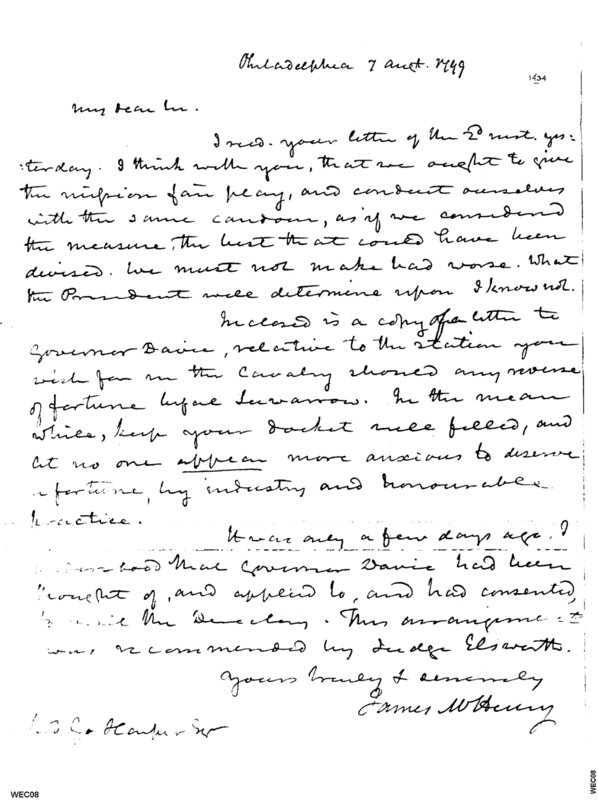 Philadelphia 7 augt. 1799
1434
My dear Sir.
I recd. your letter of the 2d inst. yes:
:terday. I think with you, that we ought to give
the mission fair play, and conduct ourselves
with the same candour, as if we considered
the measure, the best that could have been
devised. We must not make bad worse. What
the President will determine upon I know not.
Inclosed is a copy of a letter to
Governor Davie, relative to the station you
wish for in the Cavalry should any reverse
of fortune befal Suwarrow. In the mean
while, keep your docket well filled, and
let no one appear more anxious to deserve
a fortune, by industry and honourable
practice.
It was only a few days ago. I
that Governor Davie had been
thought of, and applied to, and had consented,
the Directory. This arrangement
was recommended by Judge Elsworth.
Yours truly & sincerely
James McHenry
Go Harper Esqr
WEC08
WEC08